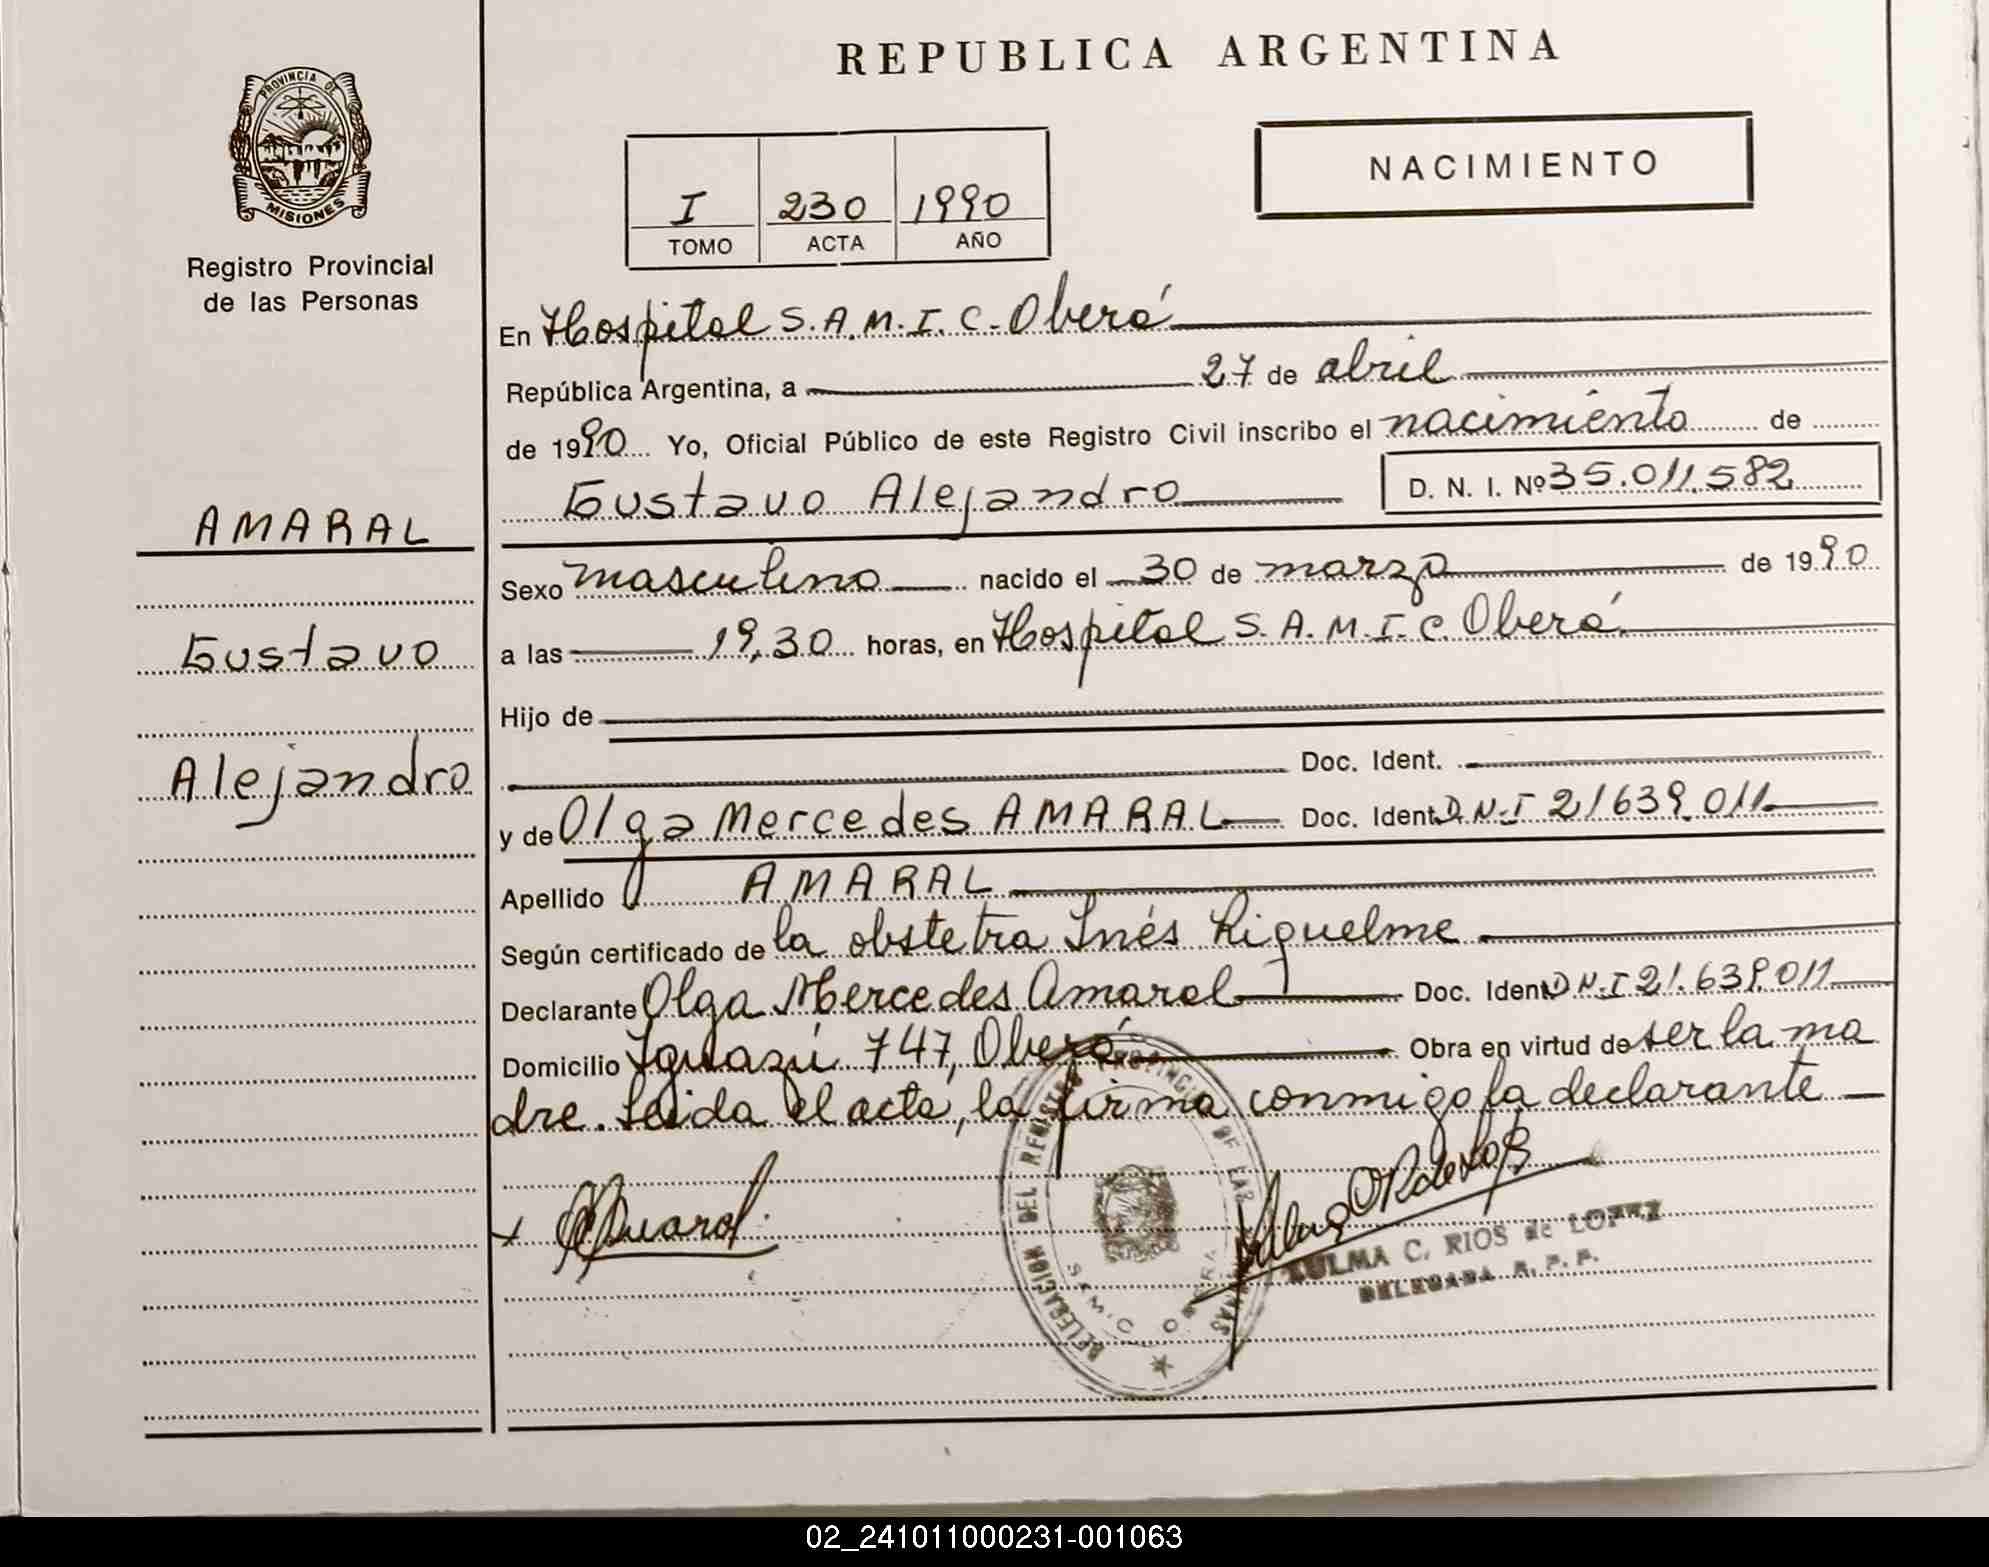 REPUBLICA ARGENTINA
PROVINCIA DE
MISIONES
Registro Provincial
de las Personas
NACIMIENTO
I 230 1990
TOMO ACTA AÑO
En Hospital S.A.M.I.C. Oberá
República Argentina, a 27 de abril
de 1990 Yo, Oficial Público de este Registro Civil inscribo el nacimiento de
Gustavo Alejandro D. N. I. Nº 35.011.582
AMARAL
Gustavo
Alejandro
Sexo masculino nacido el 30 de marzo de 1990
a las 19,30 horas, en Hospital S.A.M.I.C. Oberá
Hijo de
Doc. Ident.
y de Olga Mercedes AMARAL Doc. Ident. D.N.I 21639.011
Apellido AMARAL
Según certificado de la obstetra Inés Riquelme
Declarante Olga Mercedes Amaral Doc. Ident D.N.I 21.639.011
Domicilio Iguazú 747, Oberá Obra en virtud de ser la ma
dre. Leida el acta, la firma conmigo la declarante
DELEGACION DEL REGISTRO PROVINCIAL DE LAS PERSONAS
SAMIC OBERA
ZULMA C. RIOS de LOPEZ
DELEGADA R. P. P.
02_241011000231-001063